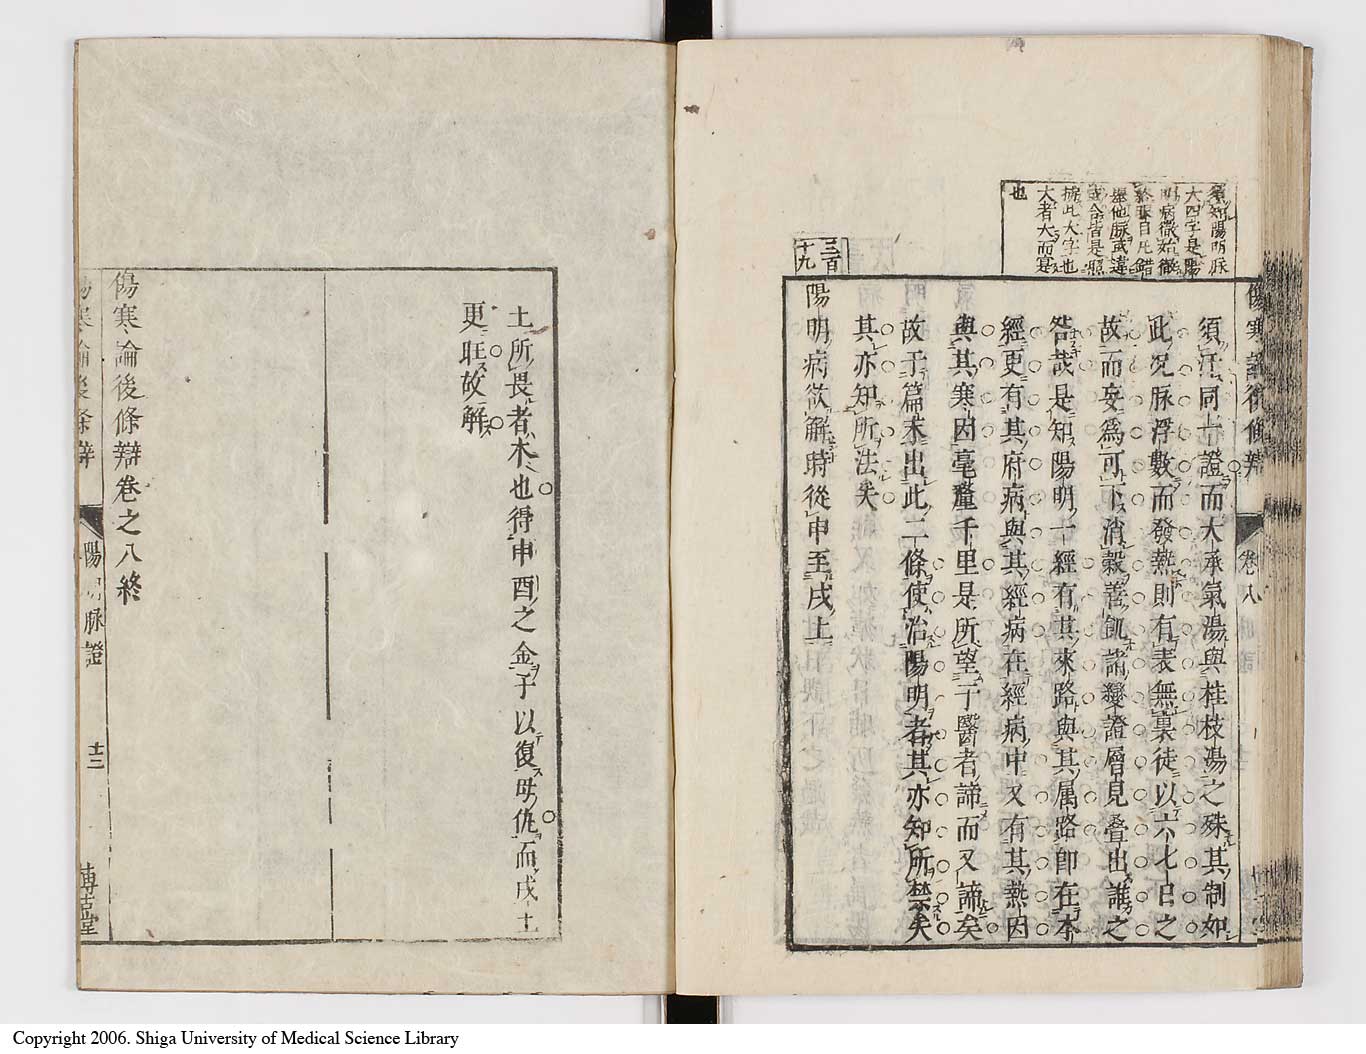 須知陽明脉
大四字是陽
明病微始微
終專自此錯
據此大字也
大者大而寔
也
傷寒論後條辨
卷八
須汗同一證而大承氣湯與桂枝湯之殊其制如
此况脉浮數而發熱則有表無裏徒以六七日之
故而妄爲可下消穀善飢諸變證層見叠出誰之
咎哉是知陽明一經有其來路與其属路卽在本
經更有其府病與其經病在經病中又有其熱因
與其寒因毫釐千里是所望于醫者諦而又諦矣
故于篇末出此二條使治陽明者其亦知所禁矣
其亦知所法矣
三百
十九
陽明病欲解時從申至戌上
土所畏者木也得申酉之金子以復母仇而戌土
更旺故解
傷寒論後條辯卷之八終
傷寒論後条辨
陽明脉證
十二
博古堂
Copyright 2006. Shiga University of Medical Science Library